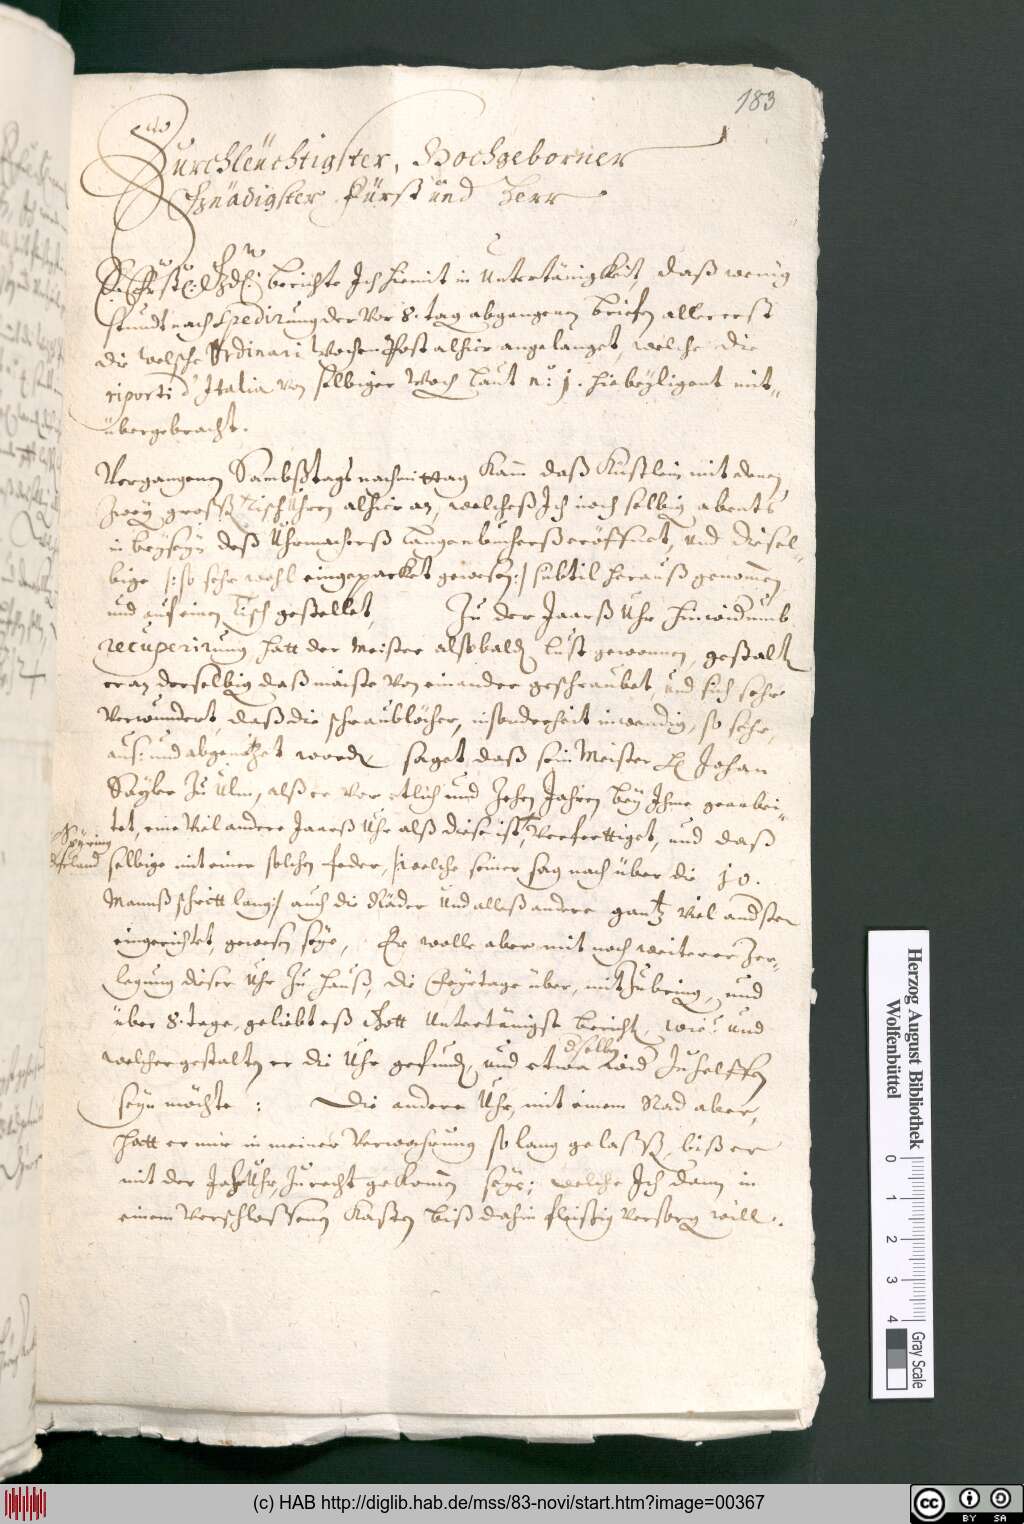 183
Durchleüchtigster, Hochgeborner
Gnädigster Fürst und Herr
berichte Ich hiemit in Untertänigkeit, daß wenig
stundt nach spedirung der vor 8. tag abgangenen briefen allererst
die welsche Ordinari wochen Post alhier angelanget, welche die
riporti d'Italia von selbiger Woch laut n.º 1. hiebeyligent mit-
übergebracht.
Vergangenen Sambßtags nachmittag kam daß Küstlein mit denen
zwey groß Tisch Uhren alhier an, welcheß Ich noch selbig abents
in beysein deß Uhrmacherß Langenbucherß eröffnet, und diesel-
bige /: so sehr wohl eingepacket gewesen :/ subtil herauß genommen
und auf einen Tisch gestellet, Zu der Jaarß Uhr hinwidumb
recuperirung hatt der Meister alsobald lust gewonnen, gestalt
er an derselbig daß maiste von einander geschraubet, und sich sehr
verwundert, daß die schraublöcher, insonderheit inwendig, so sehr,
auß: und abgenützet worden saget, daß sein Meister H Johan
Sayler zu Ulm, alß er vor etlich und zehen Jahren bey Ihme gearbei-
tet, eine viel andere Jaarß Uhr alß diese ist, verfertiget, und daß
selbige mit einer solchen feder, /: welche seiner sag nach über die 10.
Mannßschritt lang :/ auch die Räder und alleß andere gantz viel anderster
eingerichtet gewesen seye, Er wolle aber mit noch weiterer Zer-
legung dieser Uhr zu hauß, die Feyrtage über, mit zubring, und
über 8. tage, geliebt eß Gott Untertänigst bericht, wie? und
welchergestalten er die Uhr gefunden, und etwa wird zuhelffen
derselben
seyn möchte : Die andere Uhr, mit einem Rad aber,
hatt er mir in meiner Verwahrung so lang gelassen, biß er
mit der Jahr Uhr, zurecht gekommen seye; welche Ich dann in
einem verschlossenen Kasten biß dahin fleissig versorg will.
Herzog August Bibliothek
Wolfenbüttel
0 1 2 3 4
Gray Scale
(c) HAB http://diglib.hab.de/mss/83-novi/start.htm?image=00367
CC BY SA